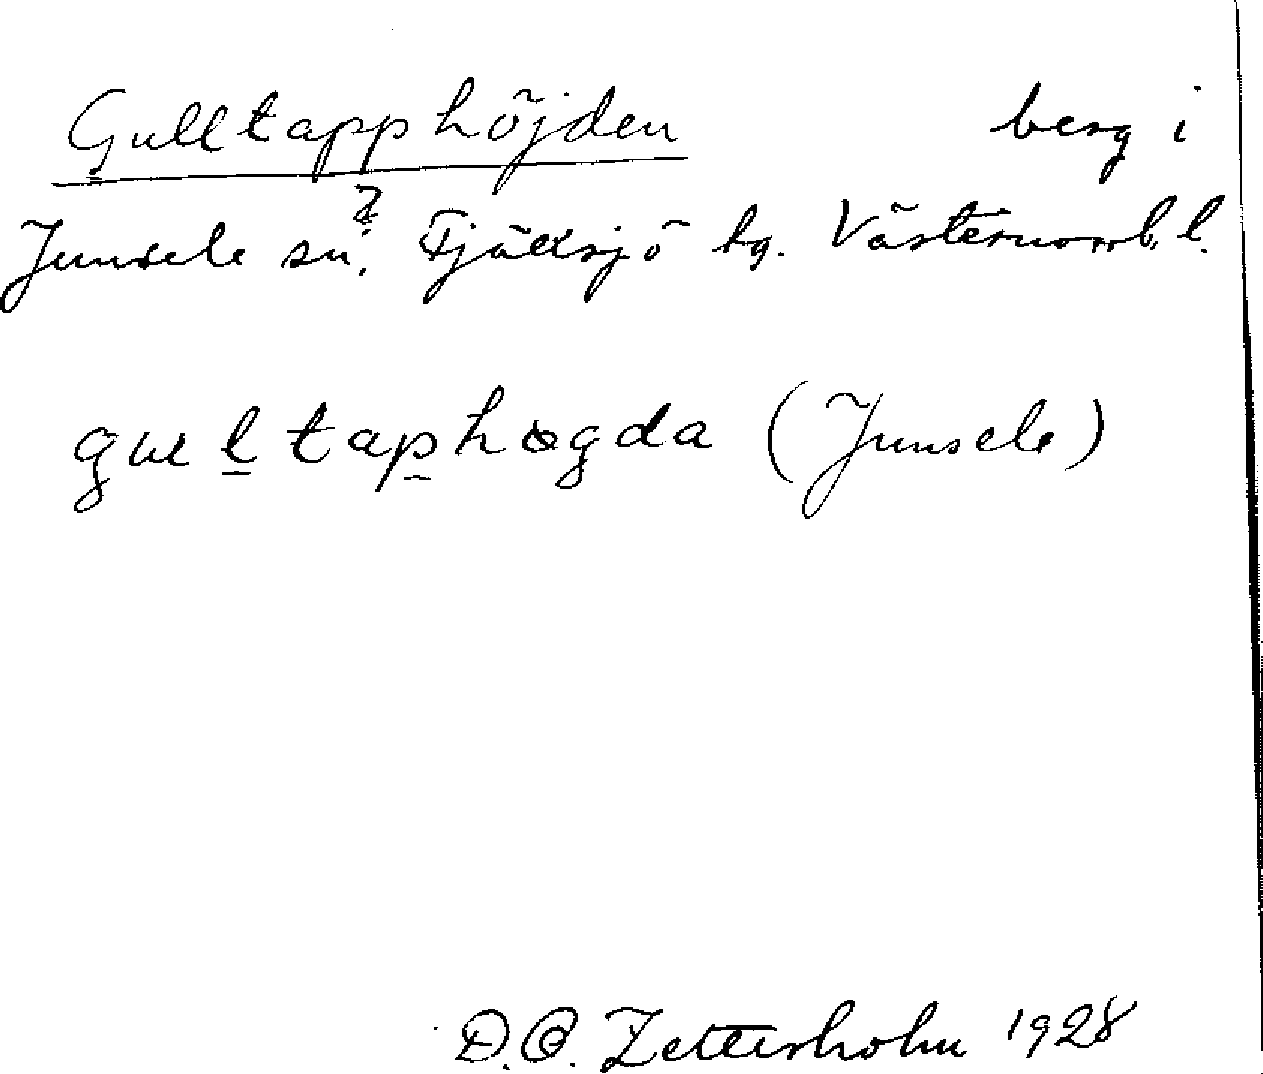 Gulltapphöjden berg i
Junsele sn? Fjällsjö hg. Västernorrl. l.
gultaphøgda (Junsele)
D.O. Zetterholm 1928